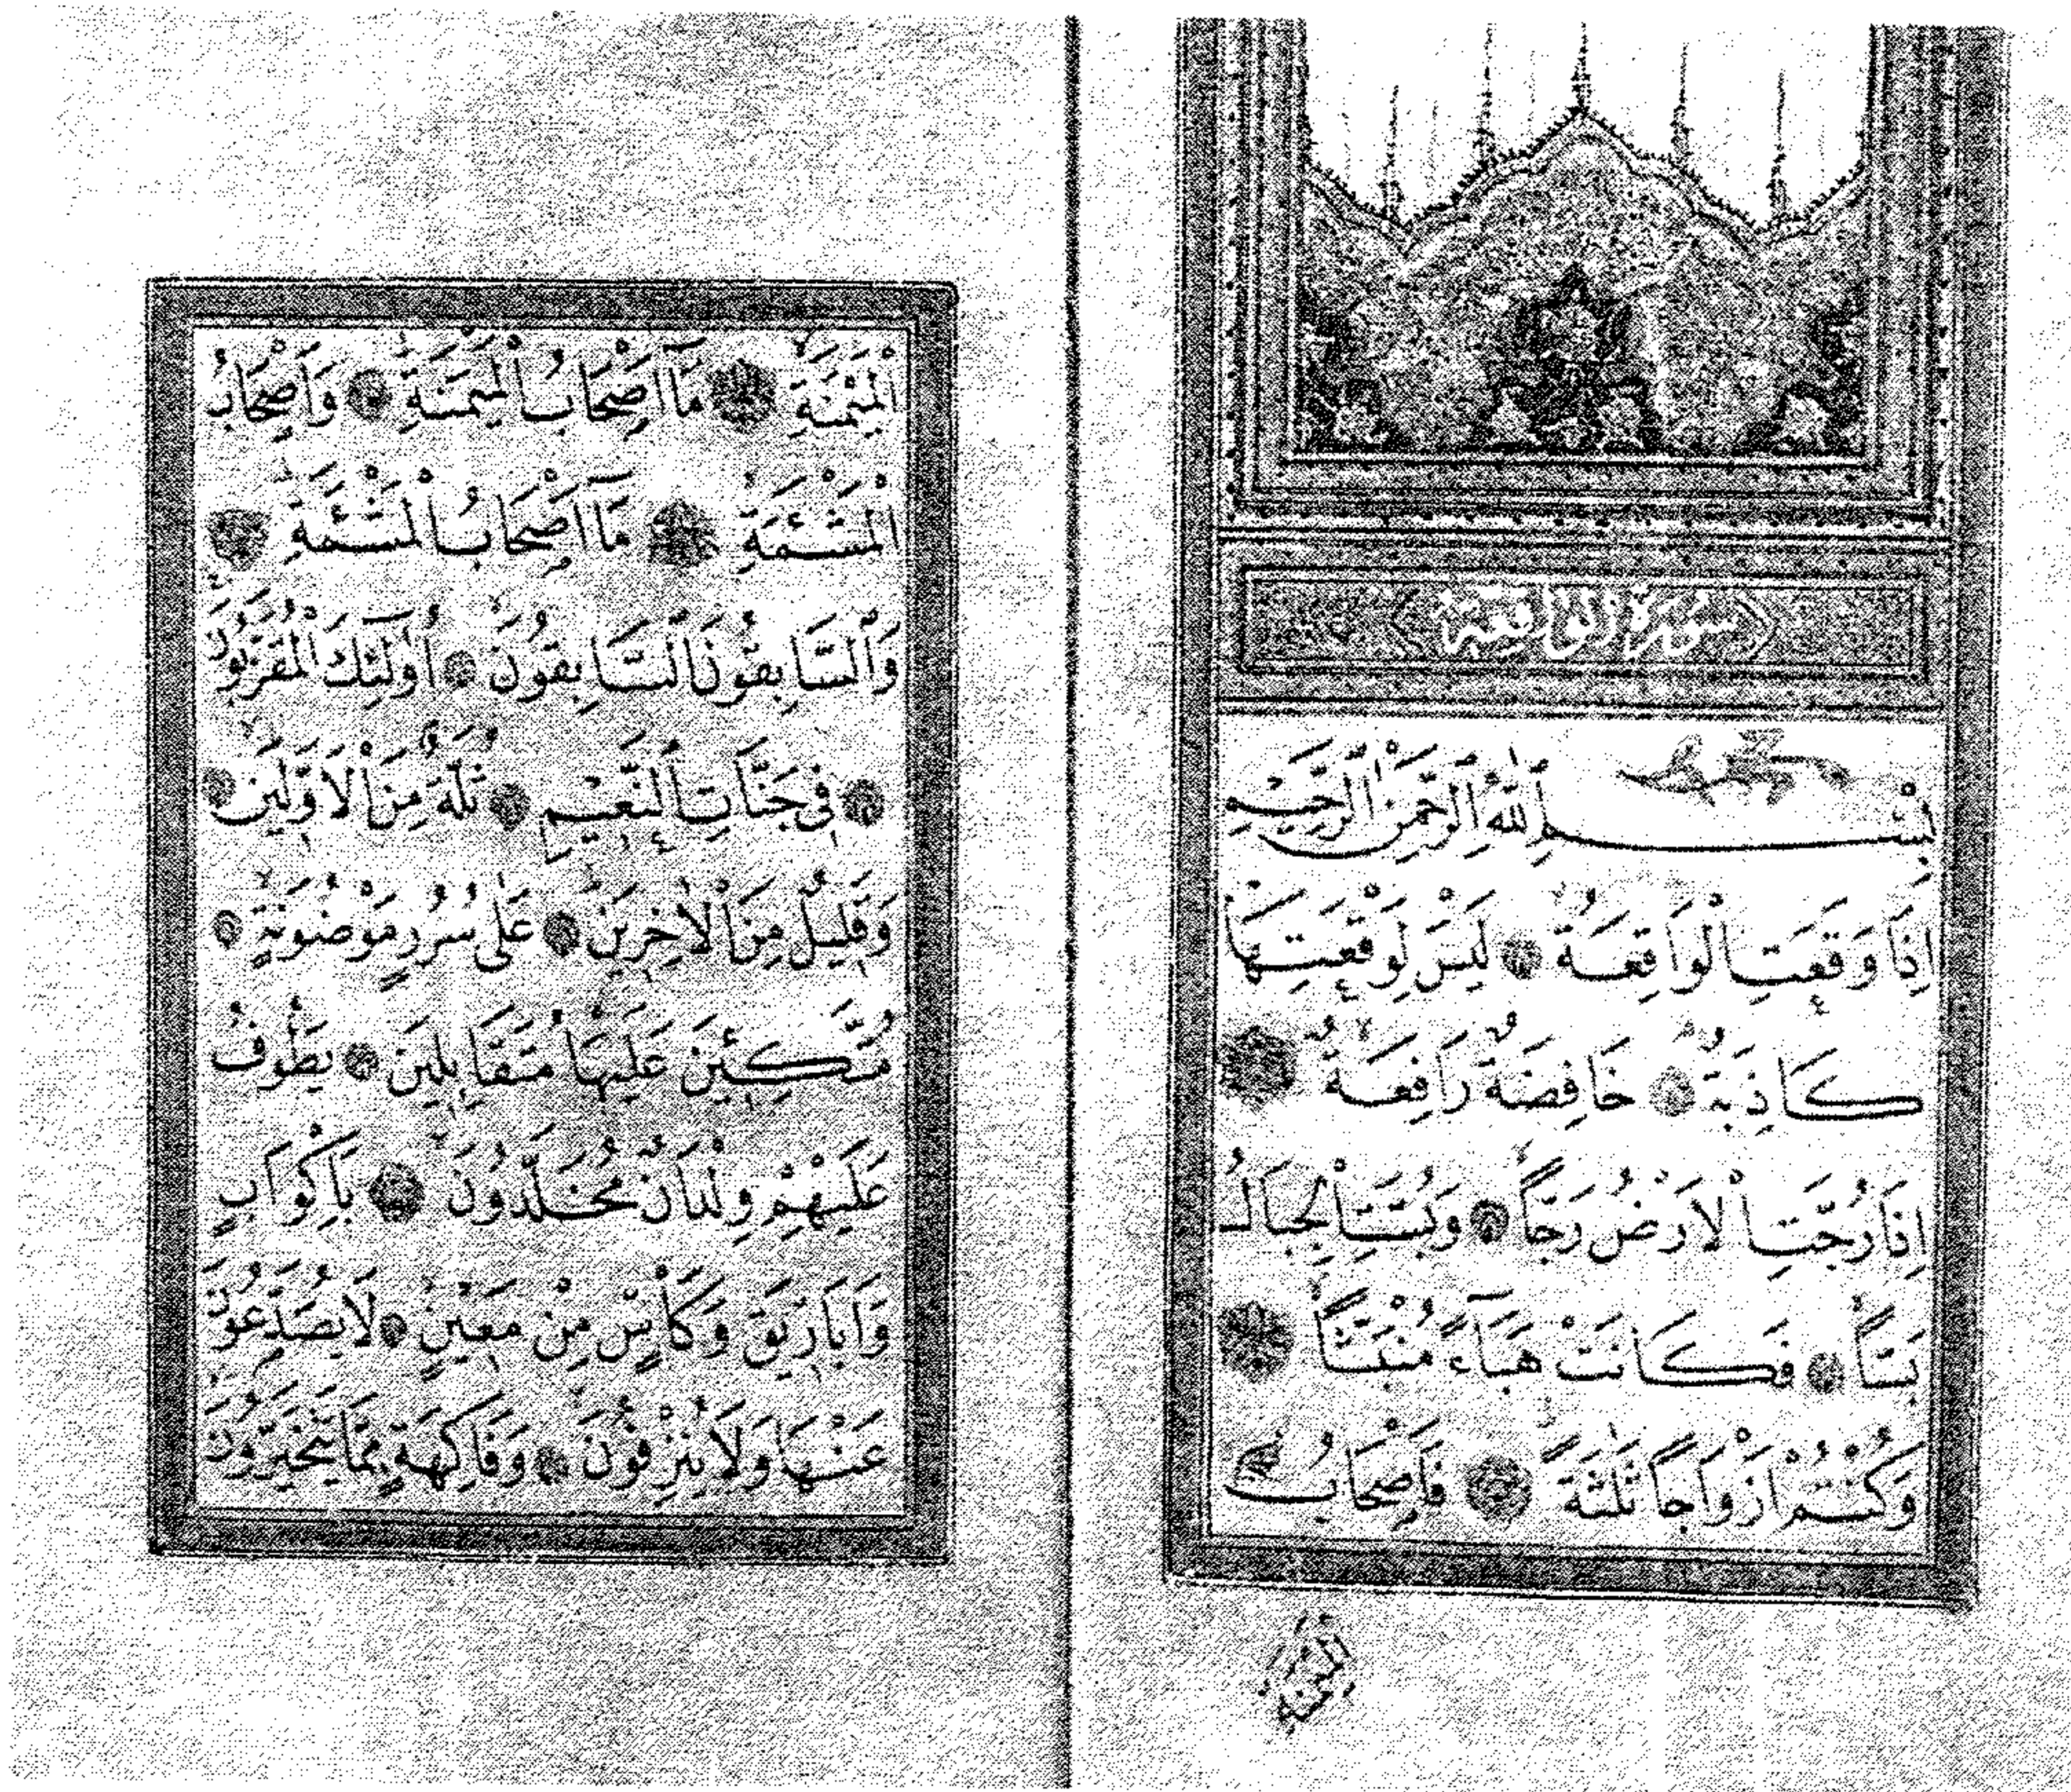 سُورَةُ الْوَاقِعَةِ
بِسْمِ اللّٰهِ الرَّحْمٰنِ الرَّحِيمِ
اِذَا وَقَعَتِ الْوَاقِعَةُ لَيْسَ لِوَقْعَتِهَا
كَاذِبَةٌ خَافِضَةٌ رَافِعَةٌ
اِذَا رُجَّتِ الْاَرْضُ رَجًّا وَبُسَّتِ الْجِبَالُ
بَسًّا فَكَانَتْ هَبَاءً مُنْبَثًّا
وَكُنْتُمْ اَزْوَاجًا ثَلٰثَةً فَاَصْحَابُ
الْمَيْمَنَةِ
الْمَيْمَنَةِ مَا اَصْحَابُ الْمَيْمَنَةِ وَاَصْحَابُ
الْمَشْئَمَةِ مَا اَصْحَابُ الْمَشْئَمَةِ
وَالسَّابِقُونَ السَّابِقُونَ اُولٰئِكَ الْمُقَرَّبُونَ
فِي جَنَّاتِ النَّعِيمِ ثُلَّةٌ مِنَ الْاَوَّلِينَ
وَقَلِيلٌ مِنَ الْاٰخِرِينَ عَلٰى سُرُرٍ مَوْضُونَةٍ
مُتَّكِئِينَ عَلَيْهَا مُتَقَابِلِينَ يَطُوفُ
عَلَيْهِمْ وِلْدَانٌ مُخَلَّدُونَ بِاَكْوَابٍ
وَاَبَارِيقَ وَكَأْسٍ مِنْ مَعِينٍ لَا يُصَدَّعُونَ
عَنْهَا وَلَا يُنْزِفُونَ وَفَاكِهَةٍ مِمَّا يَتَخَيَّرُونَ